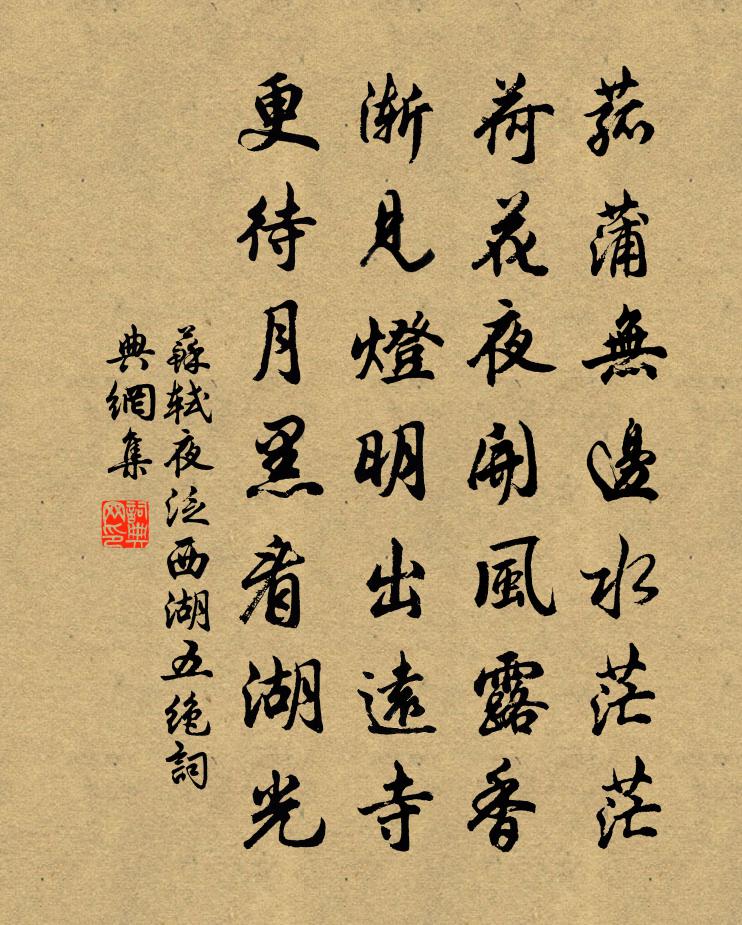 菰蒲無邊水茫茫
荷花夜開風露香
漸見燈明出遠寺
更待月黑看湖光
蘇軾夜泛西湖五絶詞
典網集
詞典
网印